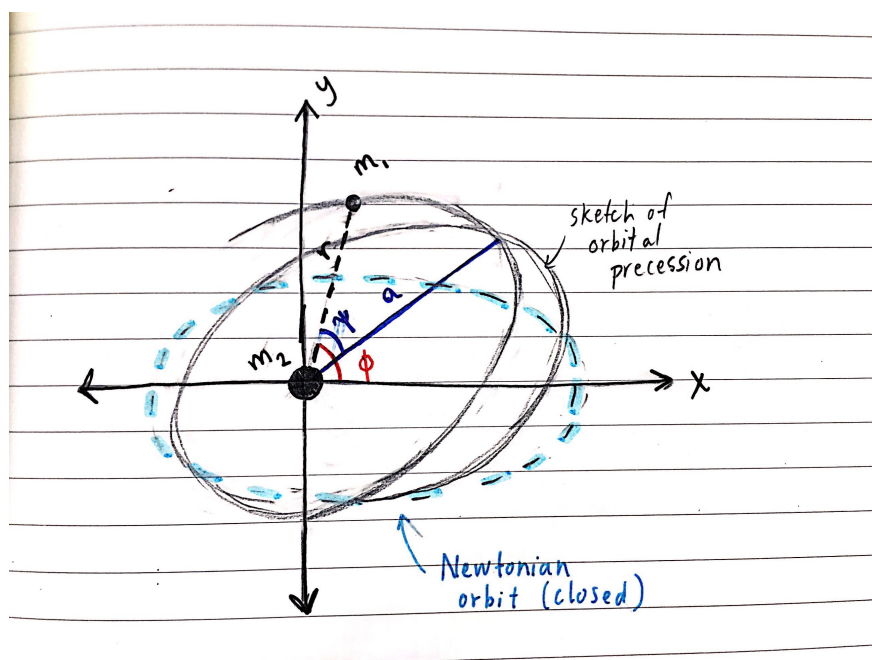 y
m₁
sketch of
orbital
precession
r
a
ψ
m₂
ϕ
x
Newtonian
orbit (closed)